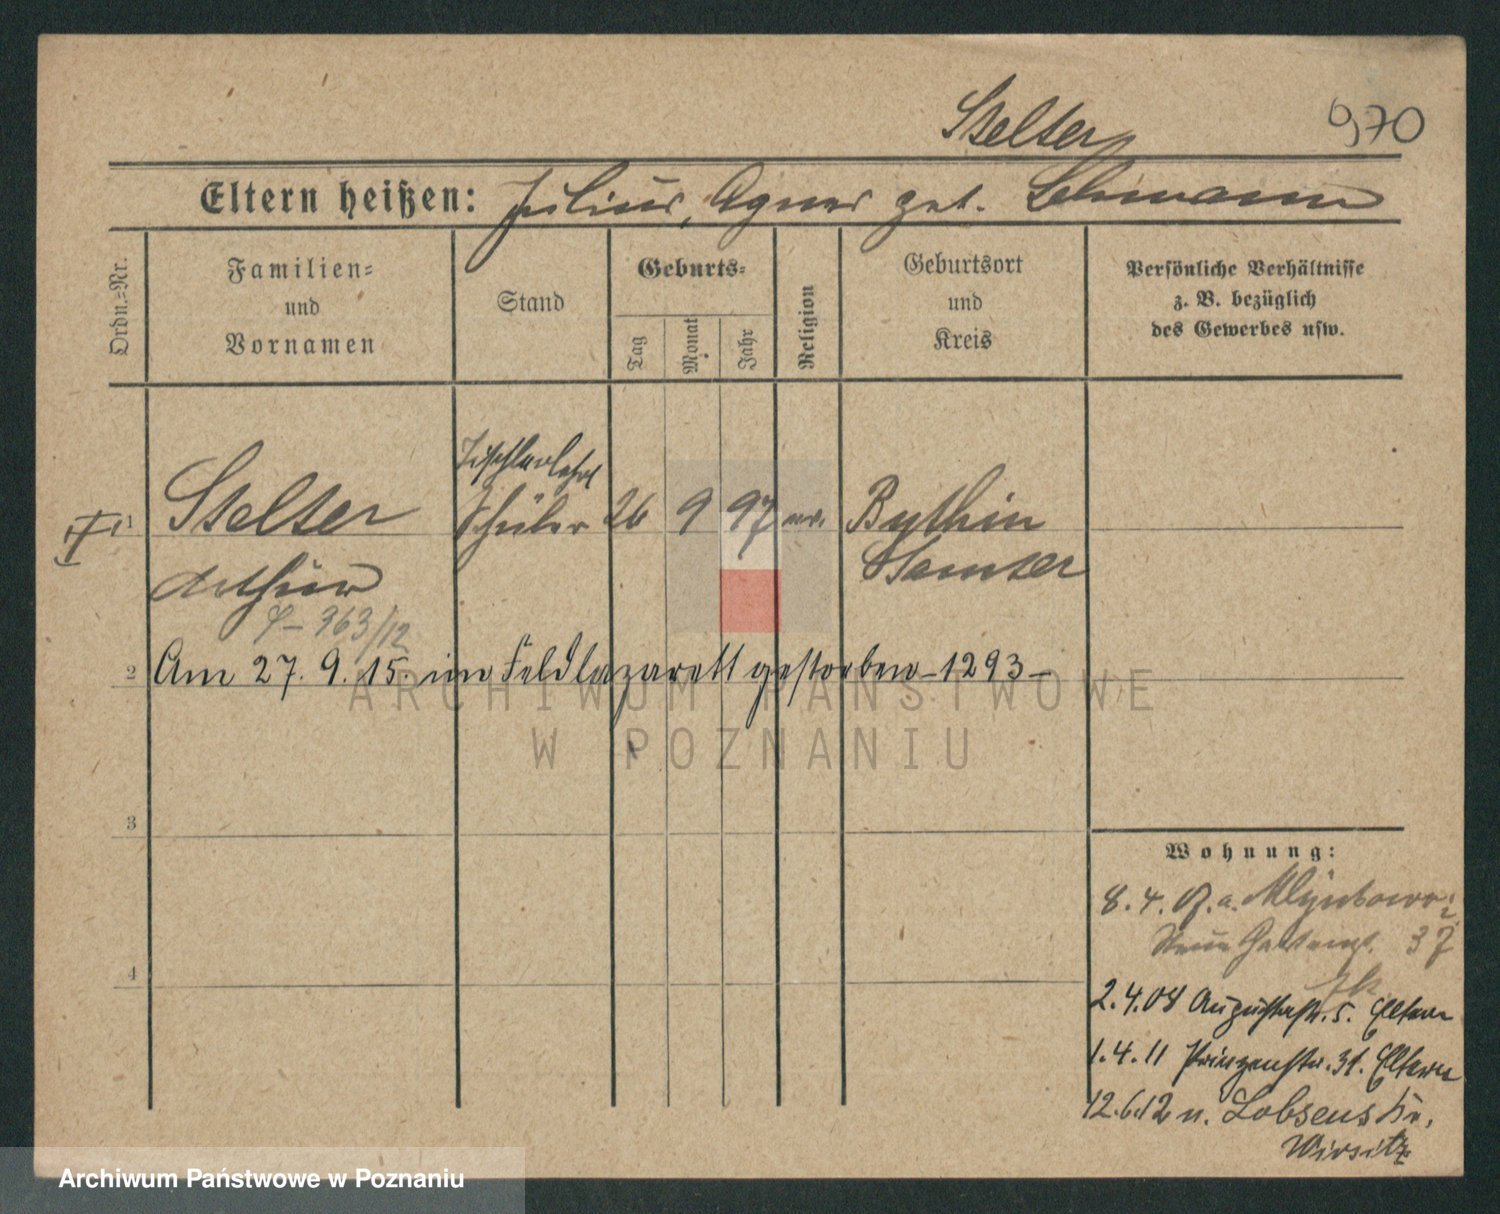 Stelter
970
Eltern heißen: Julius, Agnes geb. Lehmann
Ordn.-Nr.
Familien-
und
Vornamen
Stand
Geburts-
Tag
Monat
Jahr
Religion
Geburtsort
und
Kreis
Persönliche Verhältnisse
z. B. bezüglich
des Gewerbes usw.
Tischlerlehrl
1 Stelter Schüler 26 9 97 ev. Bythin
Arthur Samter
363/12
2 Am 27. 9. 15. im Feldlazarett gestorben - 1293 -
ARCHIWUM PAŃSTWOWE
W POZNANIU
3
4
Wohnung:
8. 4. 07. a.
Neue Gartenst. 37
2.4.08 Augustastr. 5. Eltern
1.4.11 Prinzenstr. 31. Eltern
12.6.12 n. Lobsens Kr.
Wirsitz
Archiwum Państwowe w Poznaniu